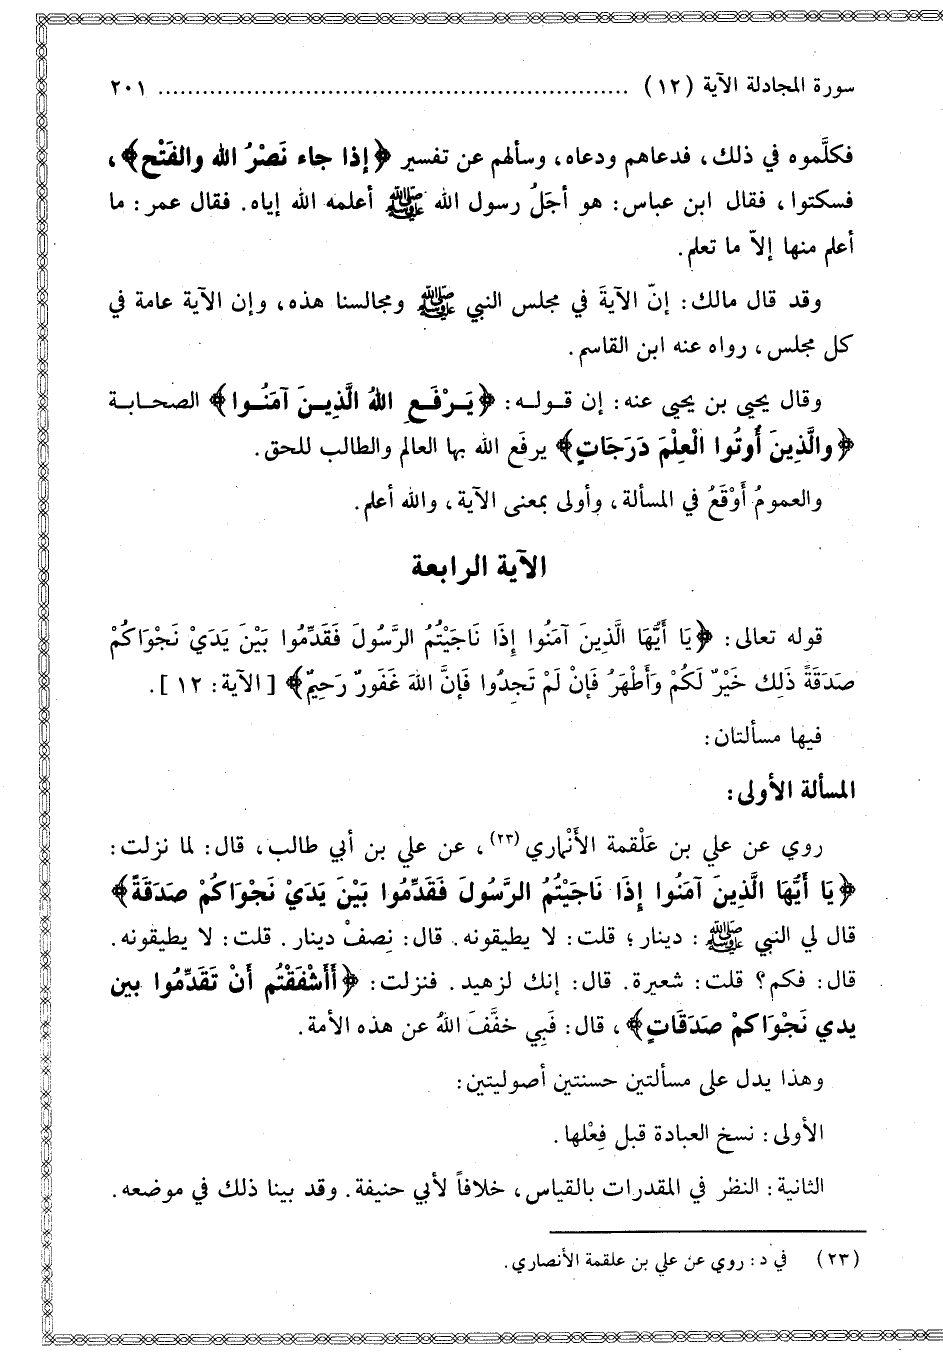 سورة المجادلة الآية (١٢) ................................................................ ٢٠١
فكلَّموه في ذلك، فدعاهم ودعاه، وسألهم عن تفسير ﴿إذا جاء نَصْرُ الله والفَتْح﴾،
فسكتوا، فقال ابن عباس: هو أجَلُ رسول الله ﷺ أعلمه الله إياه. فقال عمر: ما
أعلم منها إلاّ ما تعلم.
وقد قال مالك: إنّ الآيةَ في مجلس النبي ﷺ ومجالسنا هذه، وإن الآية عامة في
كل مجلس، رواه عنه ابن القاسم.
وقال يحيى بن يحيى عنه: إن قوله: ﴿يَرْفَعِ اللهُ الَّذِينَ آمَنُوا﴾ الصحابة
﴿والَّذِينَ أُوتُوا الْعِلْمَ دَرَجَاتٍ﴾ يرفَع الله بها العالم والطالب للحق.
والعمومُ أَوْقَعُ في المسألة، وأولى بمعنى الآية، والله أعلم.
الآية الرابعة
قوله تعالى: ﴿يَا أَيُّهَا الَّذِينَ آمَنُوا إِذَا نَاجَيْتُمُ الرَّسُولَ فَقَدِّمُوا بَيْنَ يَدَيْ نَجْوَاكُمْ
صَدَقَةً ذَلِكَ خَيْرٌ لَكُمْ وَأَطْهَرُ فَإنْ لَمْ تَجِدُوا فَإنَّ اللهَ غَفُورٌ رَحِيمٌ﴾ [الآية: ١٢].
فيها مسألتان:
المسألة الأولى:
روي عن علي بن عَلْقمة الأَنْماري(٢٣)، عن علي بن أبي طالب، قال: لما نزلت:
﴿يَا أَيُّهَا الَّذِينَ آمَنُوا إِذَا نَاجَيْتُمُ الرَّسُولَ فَقَدِّمُوا بَيْنَ يَدَيْ نَجْوَاكُمْ صَدَقَةً﴾
قال لي النبي ﷺ: دينار؛ قلت: لا يطيقونه. قال: نِصفْ دينار. قلت: لا يطيقونه.
قال: فكم؟ قلت: شعيرة. قال: إنك لزهيد. فنزلت: ﴿أَأَشْفَقْتُم أَنْ تَقَدِّمُوا بين
يدي نَجْوَاكمْ صَدَقَاتٍ﴾، قال: فَبِي خفَّفَ اللهُ عن هذه الأمة.
وهذا يدل على مسألتين حسنتين أصوليتين:
الأولى: نسخ العبادة قبل فِعْلها.
الثانية: النظر في المقدرات بالقياس، خلافاً لأبي حنيفة. وقد بينا ذلك في موضعه.
(٢٣) في د: روي عن علي بن علقمة الأنصاري.